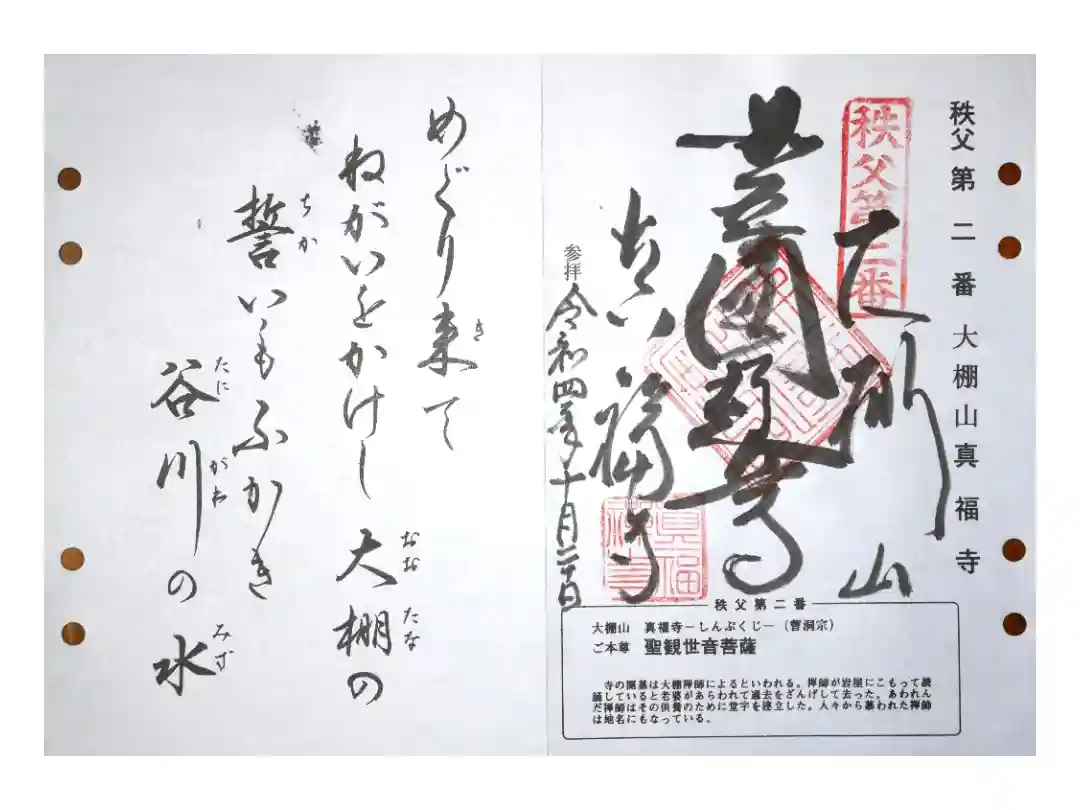 秩父第二番 大棚山真福寺
秩父第二番
大棚山
真福寺
真福禅寺
参拝 令和四年十月二十日
秩父第二番
大棚山 真福寺−しんぷくじ−（曹洞宗）
ご本尊 聖観世音菩薩
寺の開基は大棚禅師によるといわれる。禅師が岩屋にこもって読
誦していると老婆があらわれて過去をざんげして去った。あわれん
だ禅師はその供養のために堂宇を建立した。人々から慕われた禅師
は地名にもなっている。
めぐり来て
き
ねがいをかけし 大棚の
おお たな
誓いもふかき
ちか
谷川の水
たに がわ みず